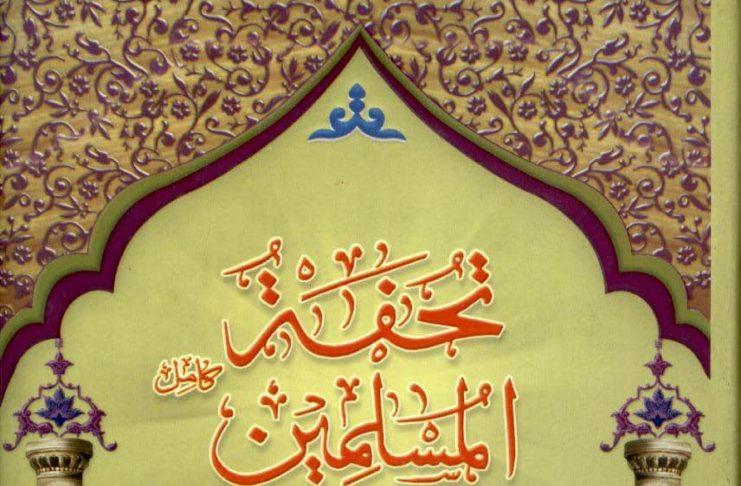 تحفۃ
المسلمین
کامل